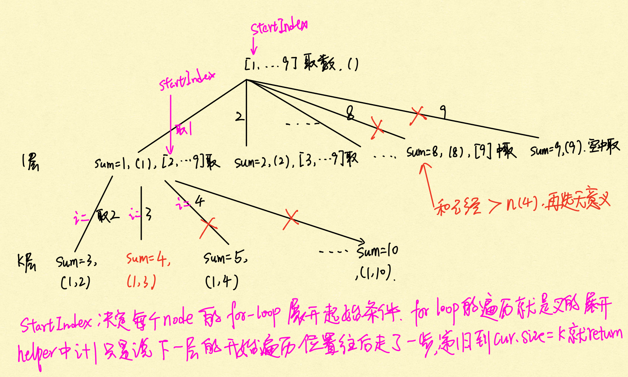 startIndex
[1,...9] 取数, ()
startIndex
取1
2
.....
8
9
1层
sum=1, (1), [2,...9]取
sum=2, (2), [3,...9]取
....
sum=8, (8), [9]中取
sum=9, (9), 空中取
i= 取2
i= 3
i= 4
和已经 > n(4), 再选无意义
K层
sum=3, (1,2)
sum=4, (1,3)
sum=5, (1,4)
.....
sum=10, (1,10).
startIndex: 决定每个node 的 for-loop 展开起始条件. for loop的遍历就是叉的展开
helper中 i+1 只是说 下一层的开始遍历位置往后走了一步, 递归到 cur.size = K 就return